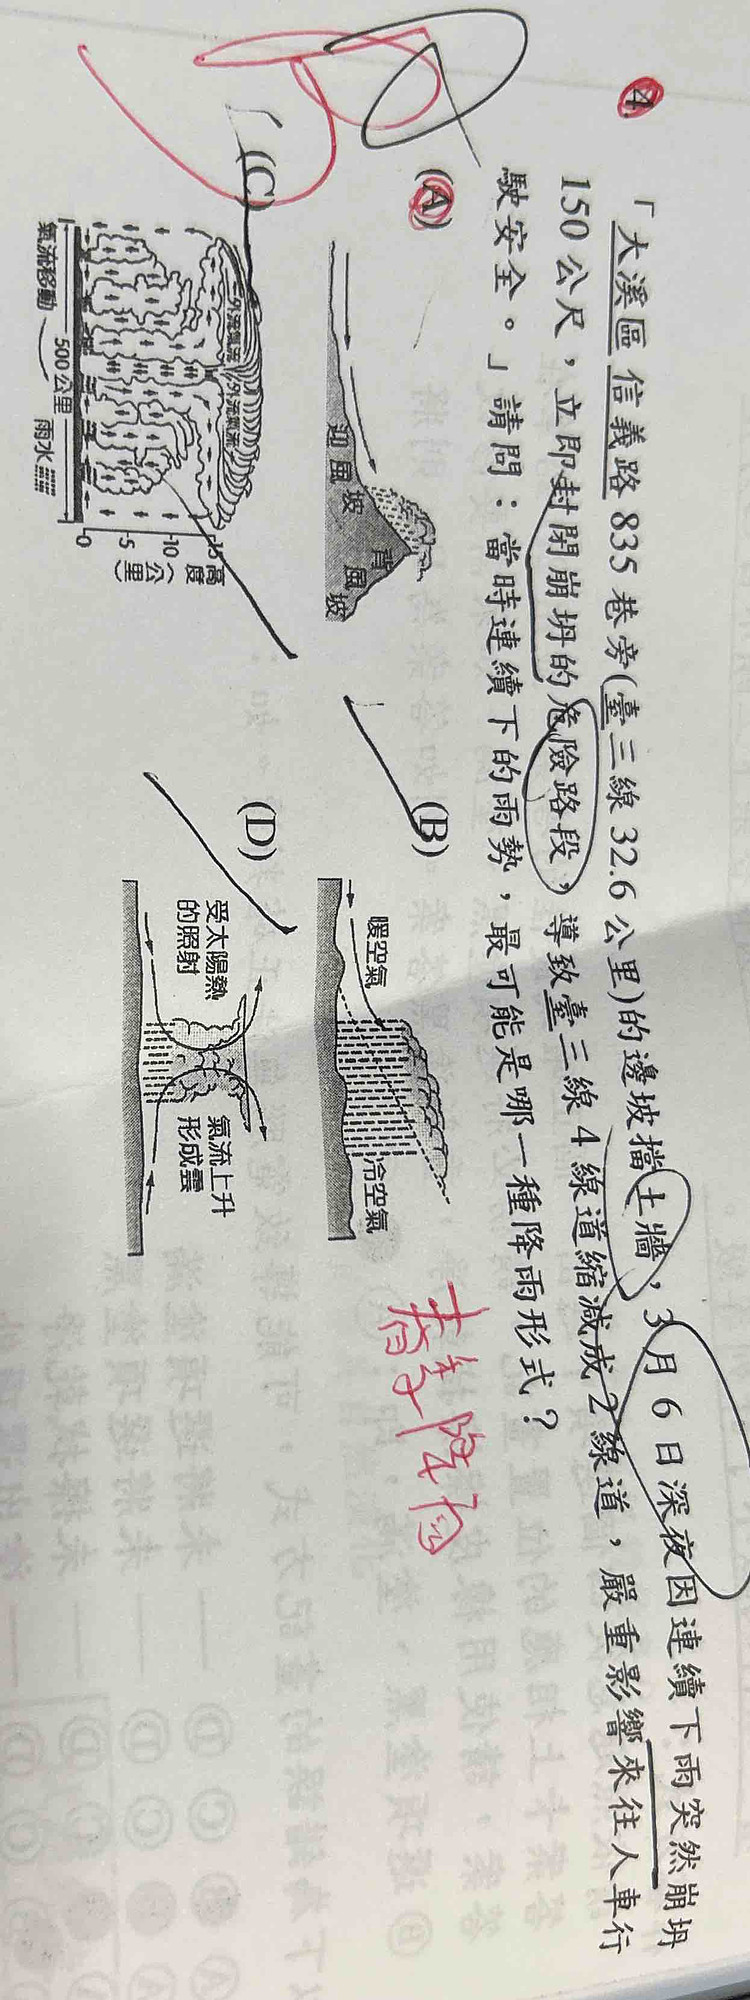 4.
「大溪區信義路 835 巷旁(臺三線 32.6 公里)的邊坡擋土牆，3 月 6 日深夜因連續下雨突然崩坍
150 公尺，立即封閉崩坍的危險路段，導致臺三線 4 線道縮減成 2 線道，嚴重影響來往人車行
駛安全。」請問：當時連續下的雨勢，最可能是哪一種降雨形式？
(A)
迎風坡
背風坡
(B)
暖空氣
冷空氣
春季降雨
(C)
外流氣流
外流氣流
15
10
5
0
高度(公里)
500公里
氣流移動
雨水
(D)
受太陽熱
的照射
氣流上升
形成雲